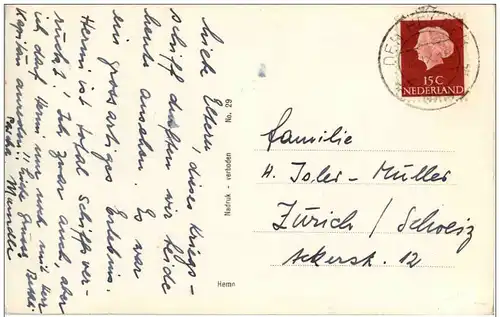 Liebe Eltern, dieses Kriegs-
schiff durften wir beide
heute ansehen. Es war
ein grossartiges Erlebnis.
Hermi ist total Schiffsver-
rückt! Ich zwar auch, aber
ich darf Hermi nur noch mit Herr
Kapitän anreden!! Liebe Grüsse
No. 29
Nadruk - verboden
Hemo
DEN
15 C
NEDERLAND
Familie
H. Joler-Müller
Zürich / Schweiz
Ackerstr. 12